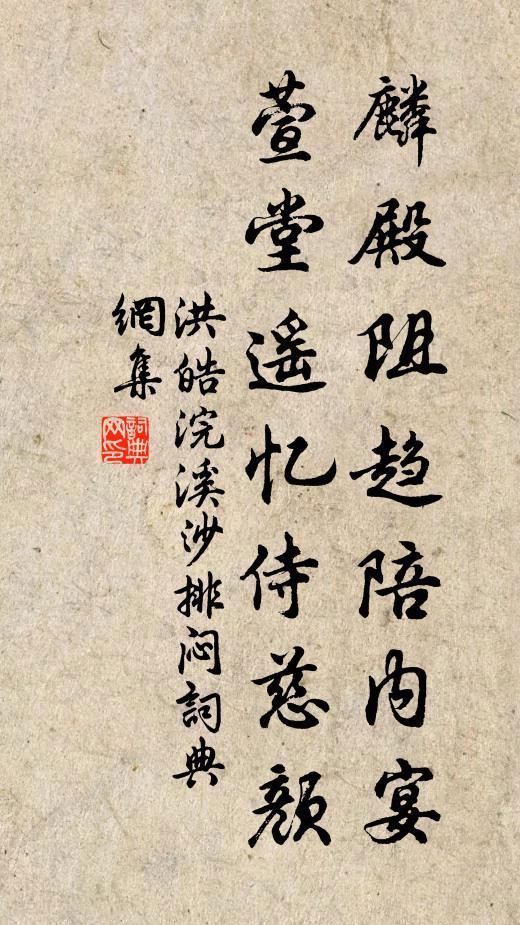 麟殿阻趋陪内宴
萱堂遥忆侍慈颜
洪皓浣溪沙排闷詞典
網集
詞典
网印